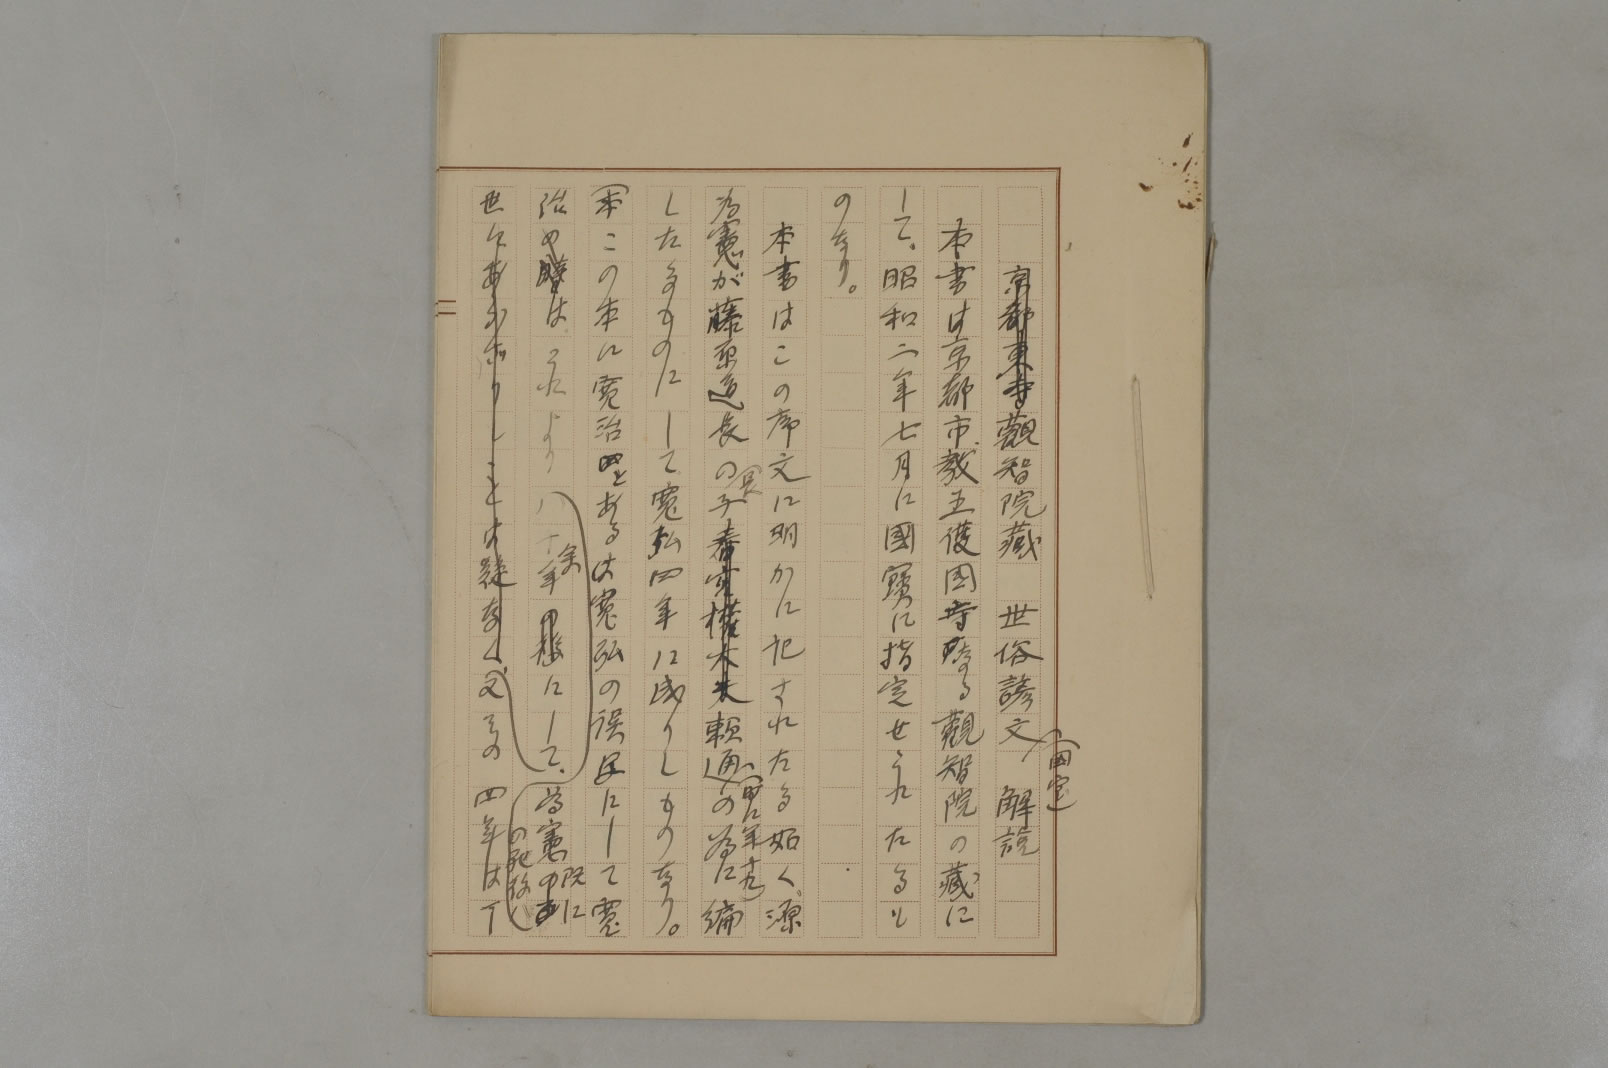 京都東寺觀智院藏　世俗諺文　解説
(国宝)
本書は京都市教王護国寺なる觀智院の藏に
して、昭和二年七月に國寶に指定せられたるも
のなり。
本書はこの序文に明かに記されたる如く、源
為憲が藤原道長の長子春宮權大夫頼通の為に編
したるものにして寛弘四年に成りしものなり。
本この本に寛治とあるは寛弘の誤写にして寛
治の時はそれより八十余年の後にして、為憲の既に
の死後
世にあらざりしことは疑なく、又その四年は丁